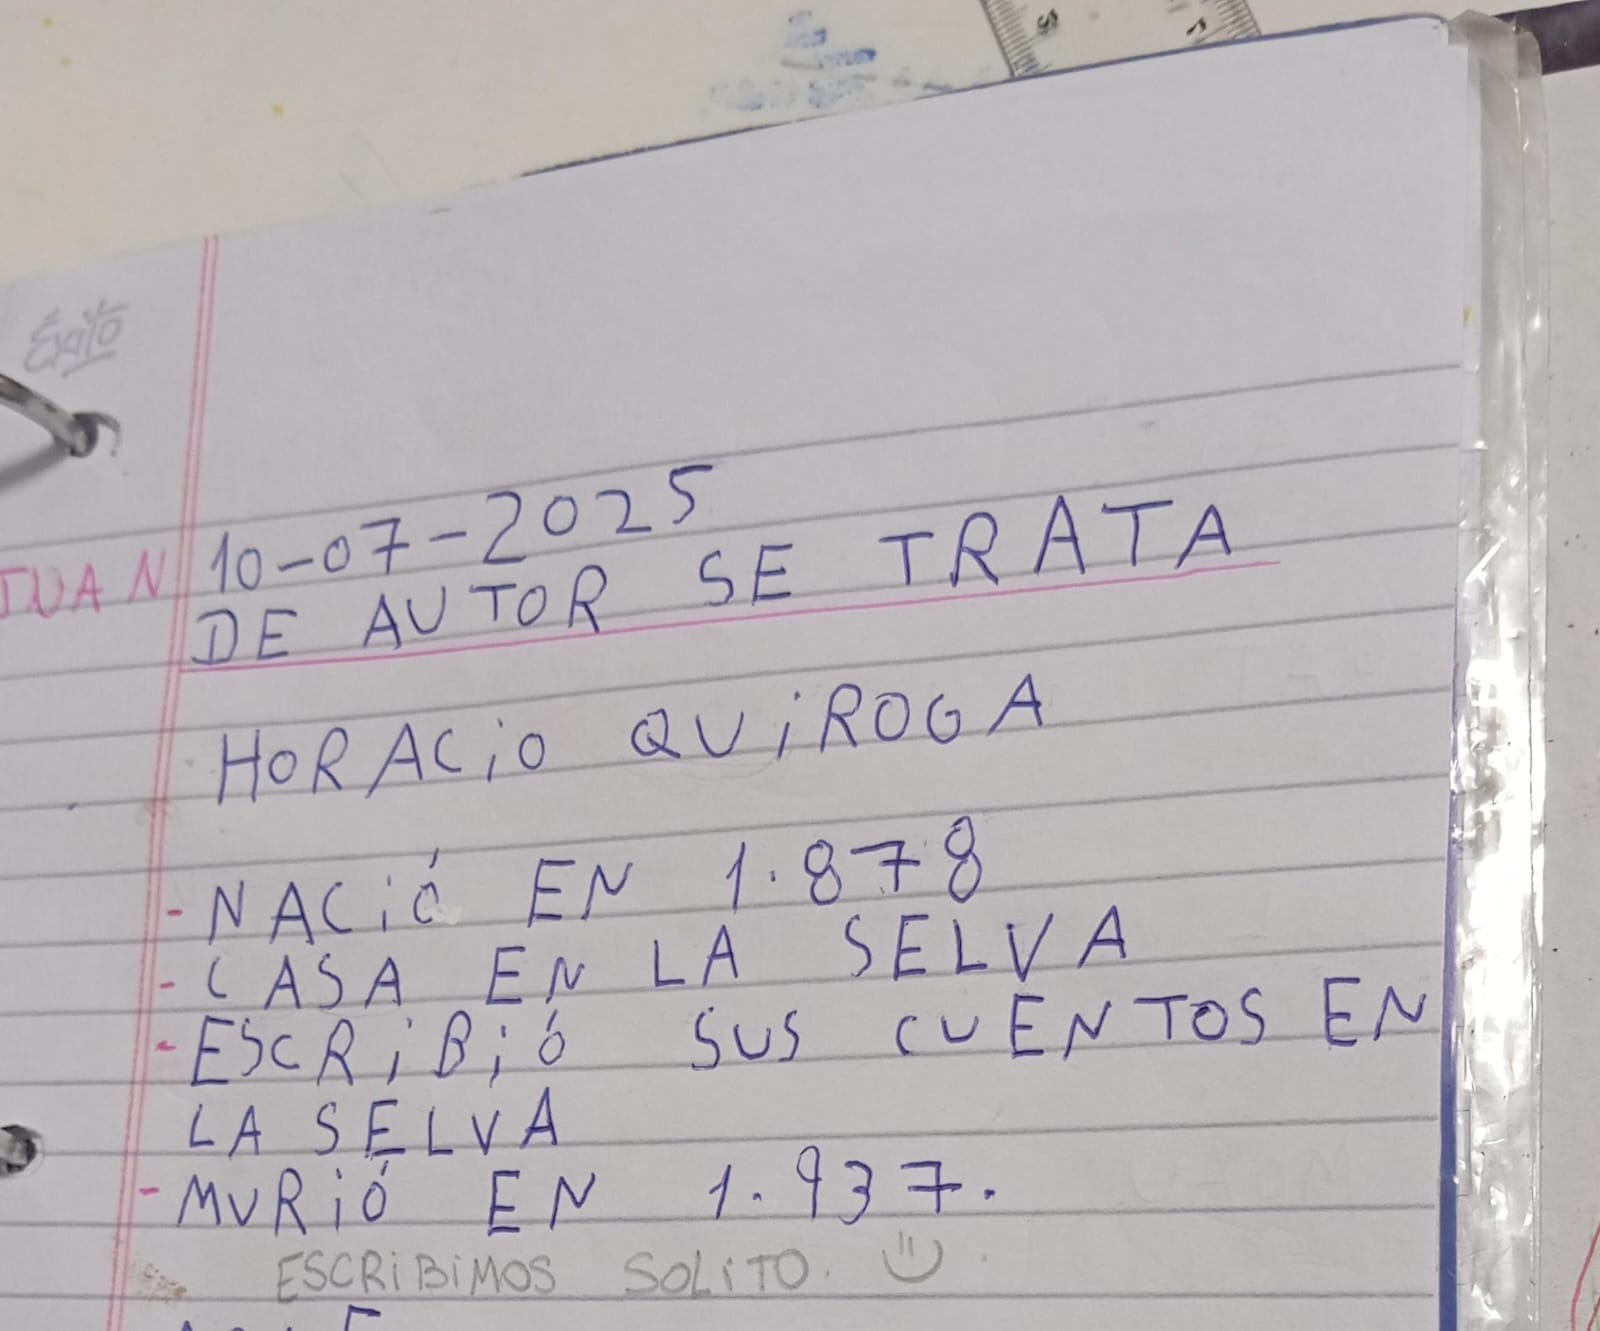 Éxito
10-07-2025
JUAN
DE AUTOR SE TRATA
HORACiO QUiROGA
- NACiÓ EN 1.878
- CASA EN LA SELVA
- ESCRiBiÓ SUS CUENTOS EN
LA SELVA
- MURiÓ EN 1.937.
ESCRiBiMOS SOLiTO.